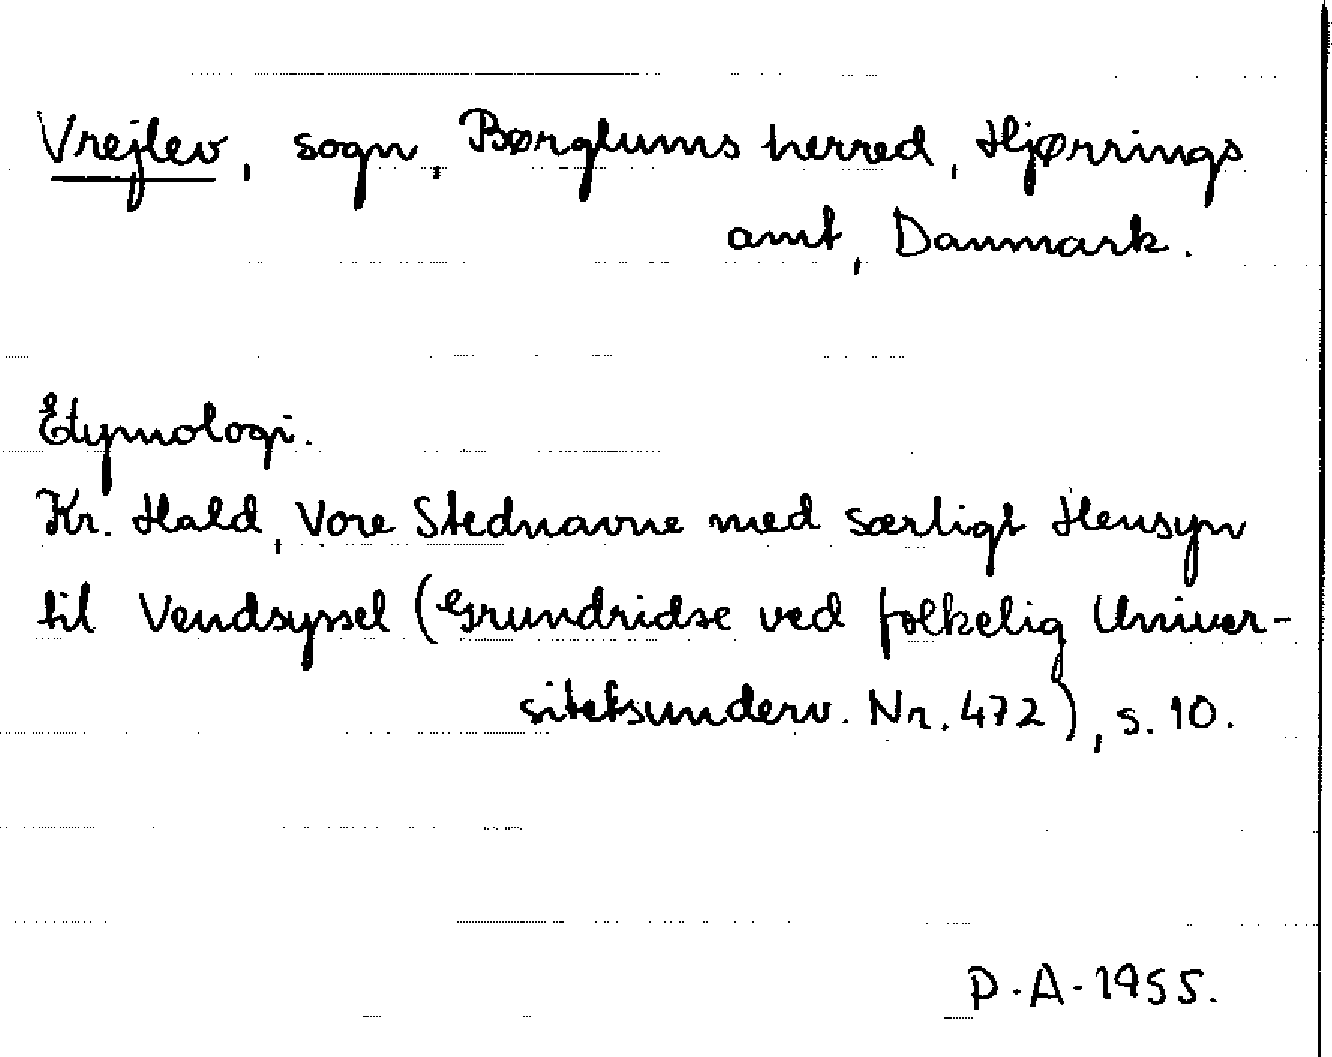 Vrejlev, sogn, Børglums herred, Hjørrings
amt, Danmark.
Etymologi.
Kr. Hald, Vore Stednavne med særligt Hensyn
til Vendsyssel (Grundridse ved folkelig Univer-
sitetsunderv. Nr. 472), s. 10.
P.A. 1955.